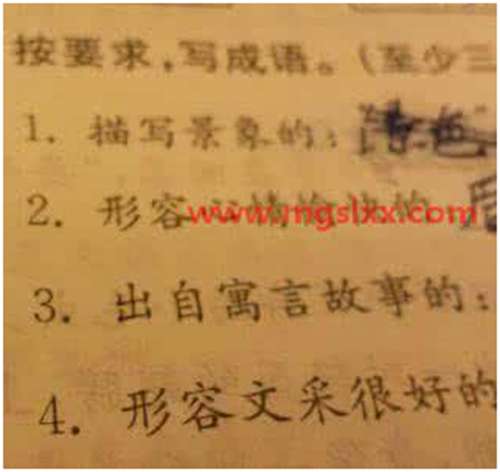 按要求,写成语。(至少三
1. 描写景象的:
2. 形容 www.mgslxx.com
3. 出自寓言故事的:
4. 形容文采很好的